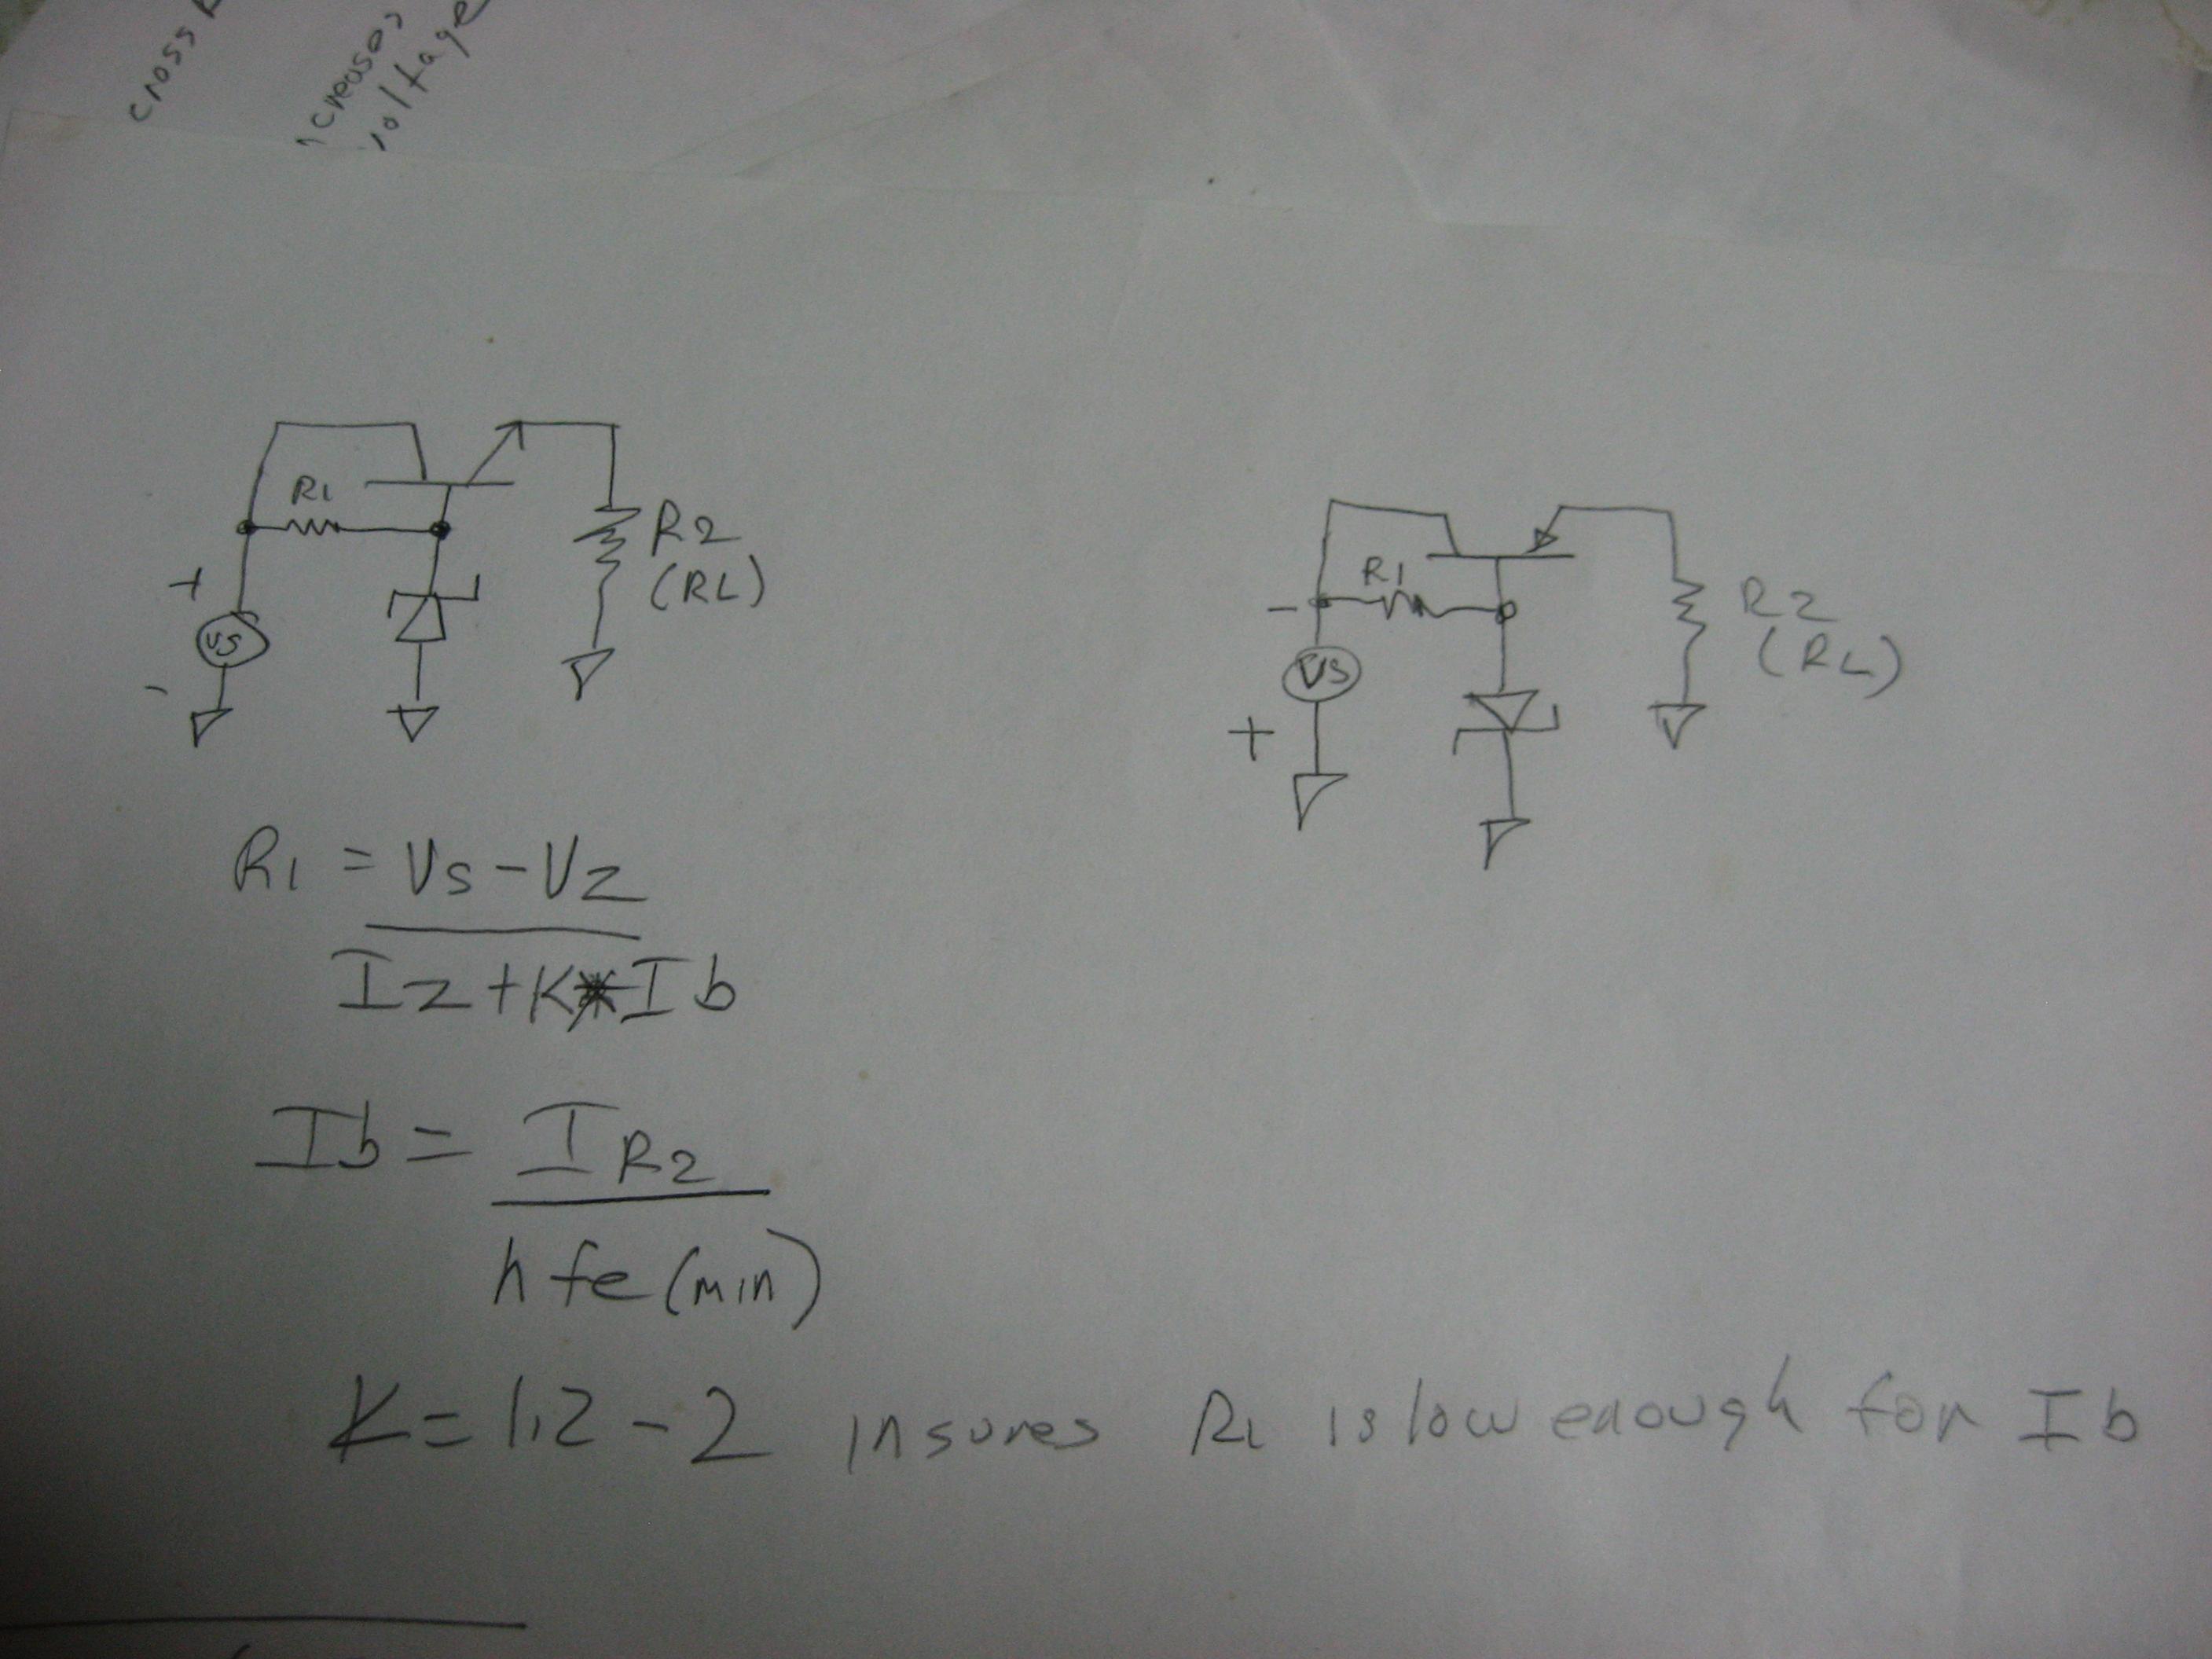 cross
increases
voltage
R1
+
VS
-
R2
(RL)
R1
-
VS
+
R2
(RL)
R1 = Vs-Vz
Iz+K*Ib
Ib = IR2
hfe(min)
K=1.2-2 insures R1 is low enough for Ib